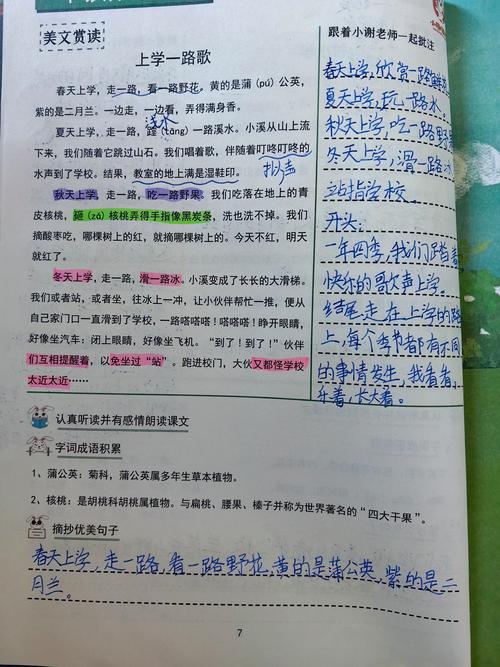 美文赏读
上学一路歌
春天上学，走一路，看一路野花。黄的是蒲（pú）公英，
紫的是二月兰。一边走，一边看，弄得满身香。
浅水
夏天上学，走一路，蹚（tāng）一路溪水。小溪从山上流
下来，我们随着它跳过山石。我们唱着歌，伴随着叮咚叮咚的
水声到了学校。结果，教室的地上满是湿鞋印。
拟声
秋天上学，走一路，吃一路野果。我们吃落在地上的青
皮核桃，砸（zá）核桃弄得手指像黑炭条，洗也洗不掉。我们
摘酸枣吃，哪棵树上的红，就摘哪棵树上的。今天不红，明天
就红了。
冬天上学，走一路，滑一路冰。小溪变成了长长的大滑梯。
我们或者站，或者坐，往冰上一冲，让小伙伴帮忙一推，便从
自己家门口一直滑到了学校，一路嗒嗒嗒！嗒嗒嗒！睁开眼睛，
好像坐汽车；闭上眼睛，好像坐飞机。“到了！到了！”伙伴
们互相提醒着，以免坐过“站”。跑进校门，大伙又都怪学校
太近太近……
跟着小谢老师一起批注
春天上学，欣赏一路鲜
夏天上学，玩一路水。
秋天上学，吃一路野果
冬天上学，滑一路冰
站指学校。
开头：
一年四季，我们踏着
快乐的歌声上学。
结尾走在上学的路
上，每个季节都有不同
的事情发生，我看着，
乐着，长大着。
认真听读并有感情朗读课文
字词成语积累
1、蒲公英：菊科，蒲公英属多年生草本植物。
2、核桃：是胡桃科胡桃属植物。与扁桃、腰果、榛子并称为世界著名的“四大干果”。
摘抄优美句子
春天上学，走一路，看一路野花，黄的是蒲公英，紫的是二
月兰。
7